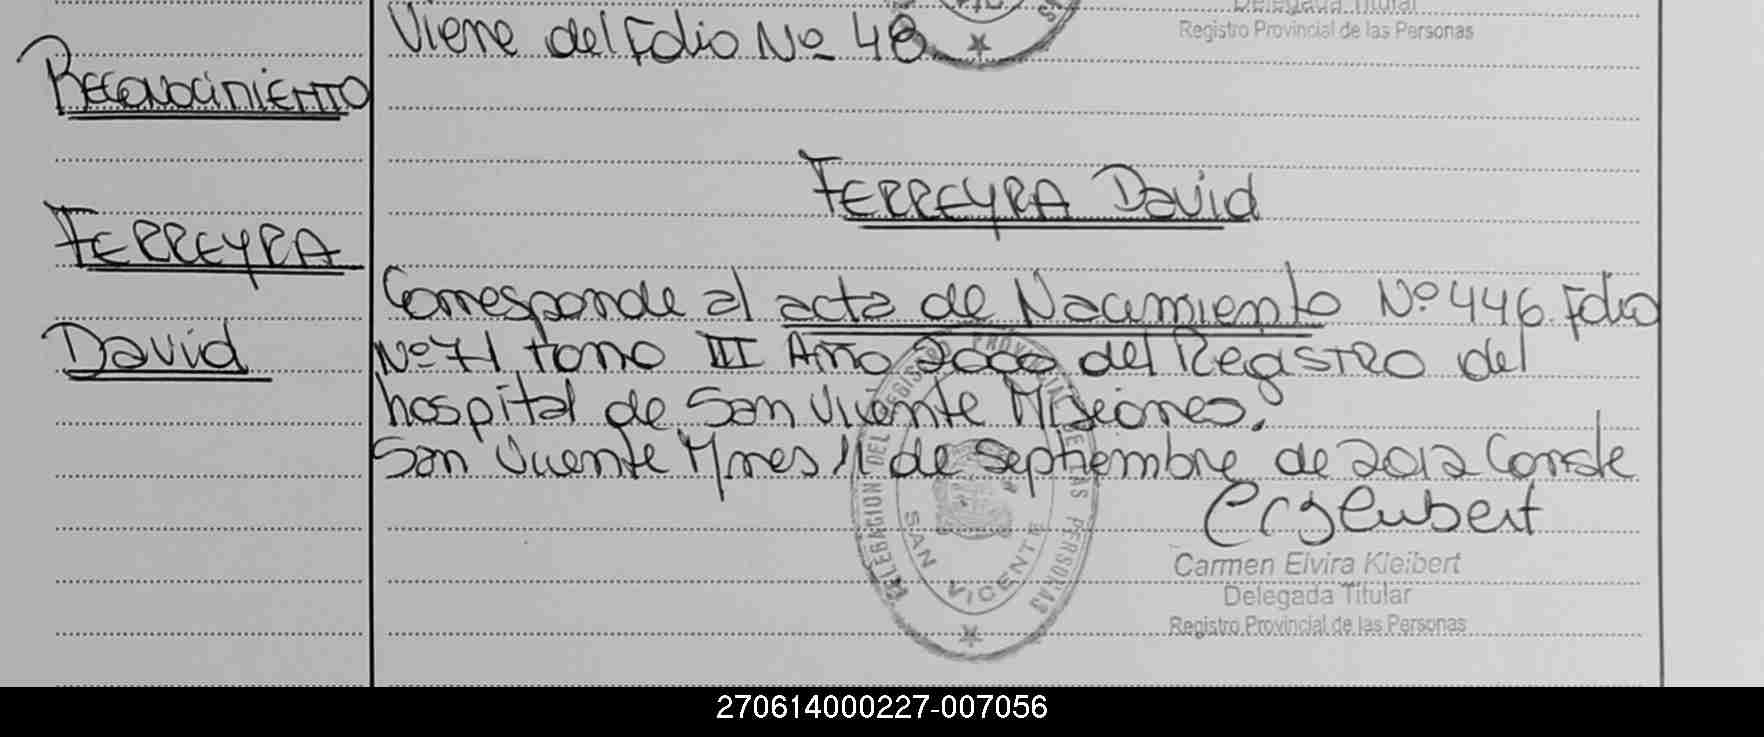 Viene del Folio Nº 48
Delegada Titular
Registro Provincial de las Personas
Reconocimiento
FERREYRA David
FERREYRA
David
Corresponde al acta de Nacimiento Nº 446 Folio
Nº 71 tomo III Año 2000 del Registro del
hospital de San Vicente Misiones.
San Vicente Mnes 11 de septiembre de 2012 Conste
DELEGACION DEL REGISTRO PROVINCIAL DE LAS PERSONAS
SAN VICENTE
Carmen Elvira Kleibert
Delegada Titular
Registro Provincial de las Personas
270614000227-007056